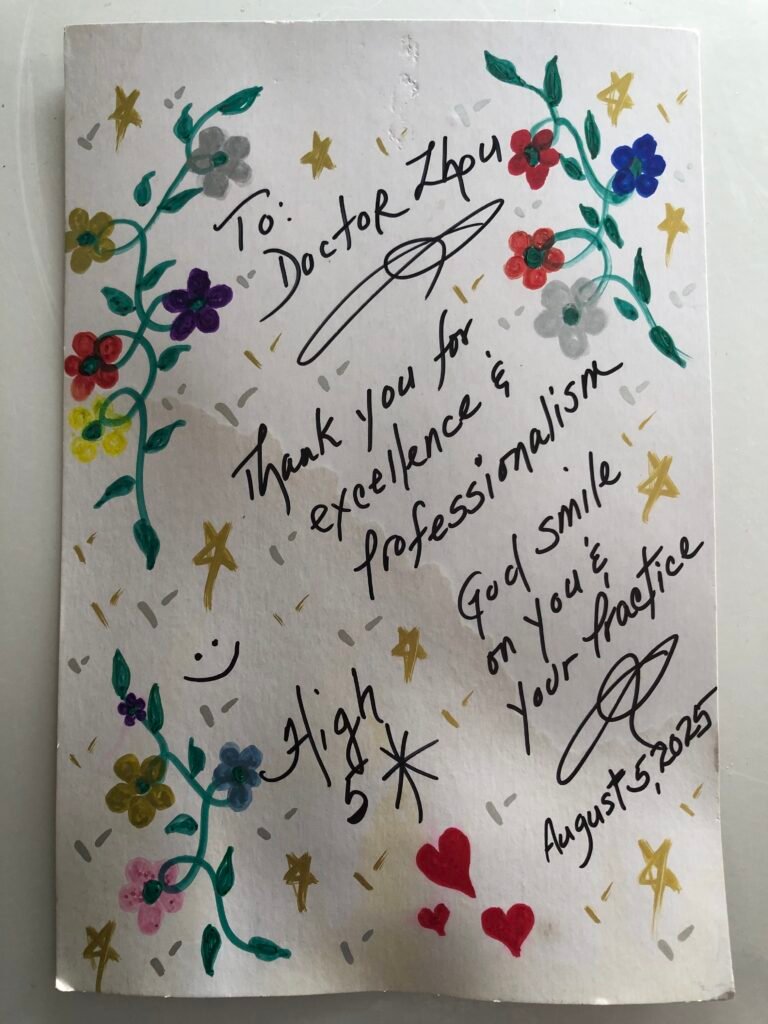 To:
Doctor Zhou
Thank you for
excellence &
Professionalism
God smile
on you &
your Practice
High
5
August 5, 2025